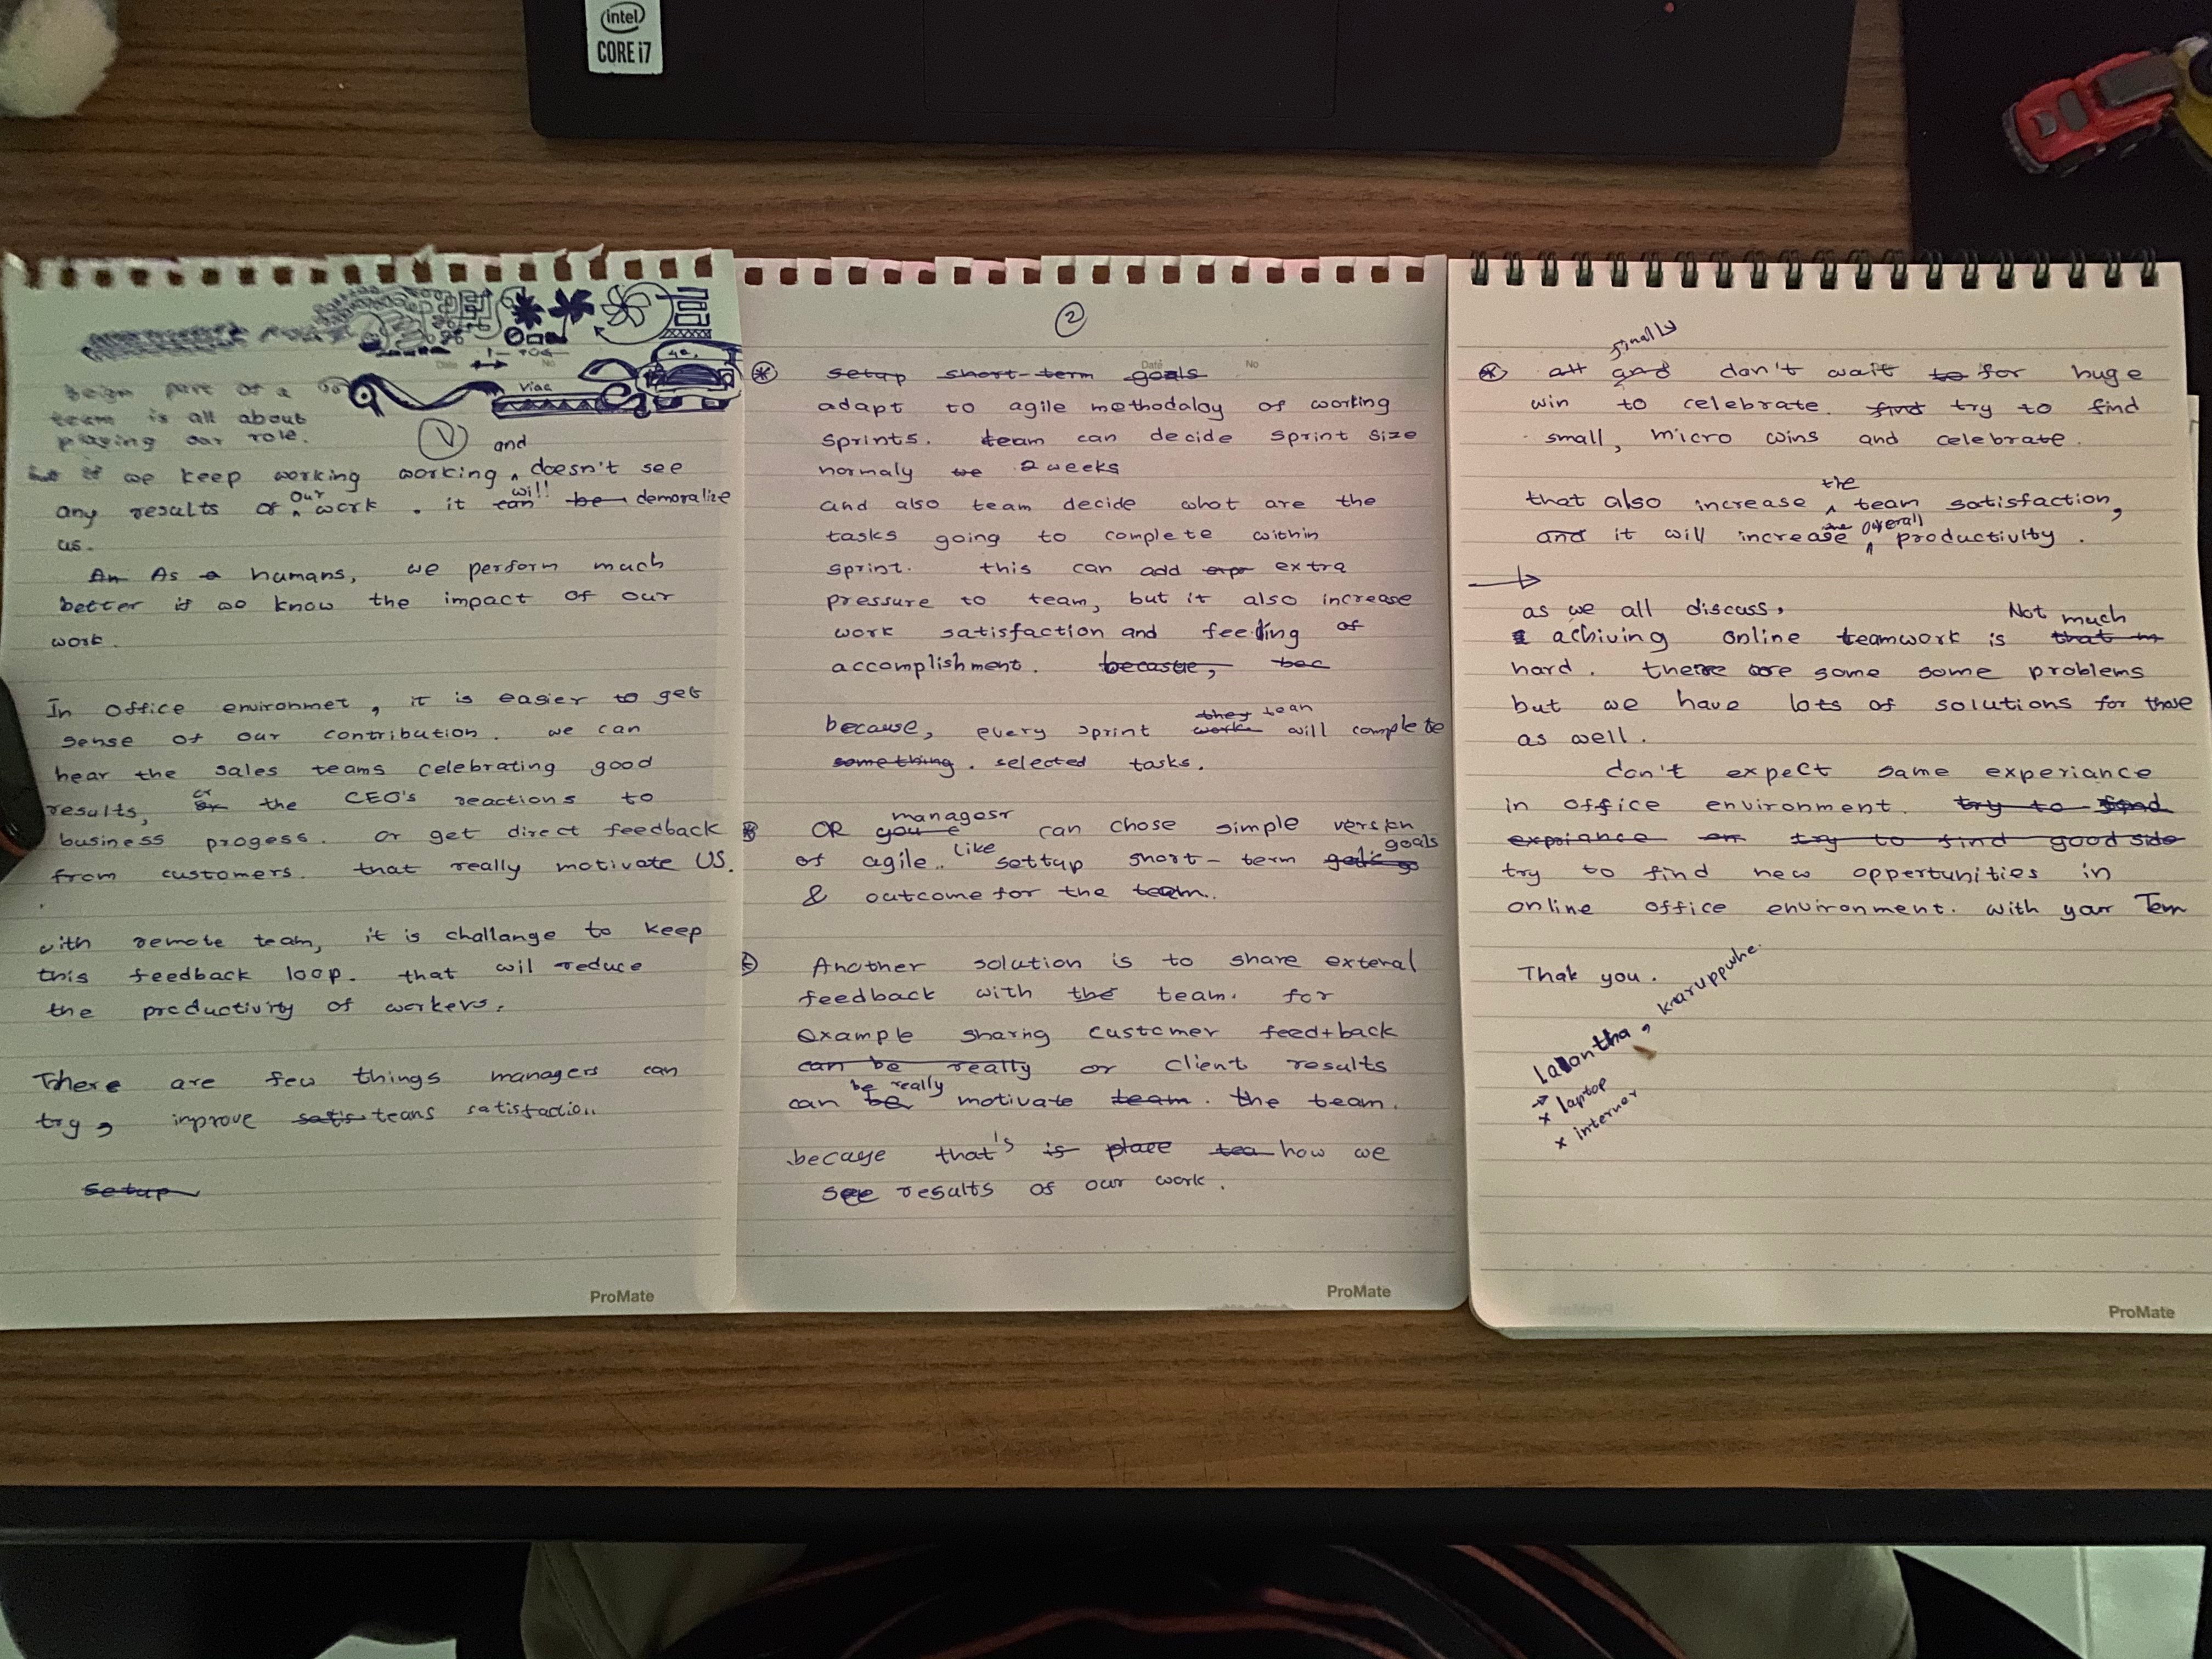 being part of a
team is all about
playing our role.
①
and
but if we keep working working ^ doesn't see
any results of ^ our work . it can will be demoralize
us.
Am As a humans, we perform much
better if we know the impact of our
work.
In office environmet, it is easier to get
sense of our contribution. we can
hear the sales teams celebrating good
results, or the CEO's reactions to
business progess. or get direct feedback
from customers. that really motivate us.
with remote team, it is challange to keep
this feedback loop. that wil reduce
the productivity of workers.
There are few things managers can
try, improve satis teams satisfaction.
setup
ProMate
②
Date
No
setup short-term goals
adapt to agile methodaloy of working
sprints. team can decide sprint size
normaly we 2 weeks
and also team decide what are the
tasks going to complete within
sprint. this can add extra
pressure to team, but it also increase
work satisfaction and feeling of
accomplishment. because, bec
because, every sprint they team will complete
something. selected tasks.
OR managesr can chose simple version
of agile.. like settup short-term goals
& outcome for the team.
Another solution is to share exteral
feedback with the team. for
example sharing custemer feed+back
can be really or client results
can be really motivate team. the team.
because that's is place tea how we
see results of our work.
ProMate
finally
don't wait to for huge
win to celebrate. find try to find
small, micro wins and celebrate.
that also increase ^ the team satisfaction,
and it will increase overall productivity.
as we all discuss, Not much
achiving online teamwork is that
hard. there are some some problems
but we have lots of solutions for those
as well.
don't expect same experiance
in office environment. try to find
try to find good side
try to find new oppertunities in
online office environment. with your Team
Thak you.
* laptop
ProMate
intel
CORE i7